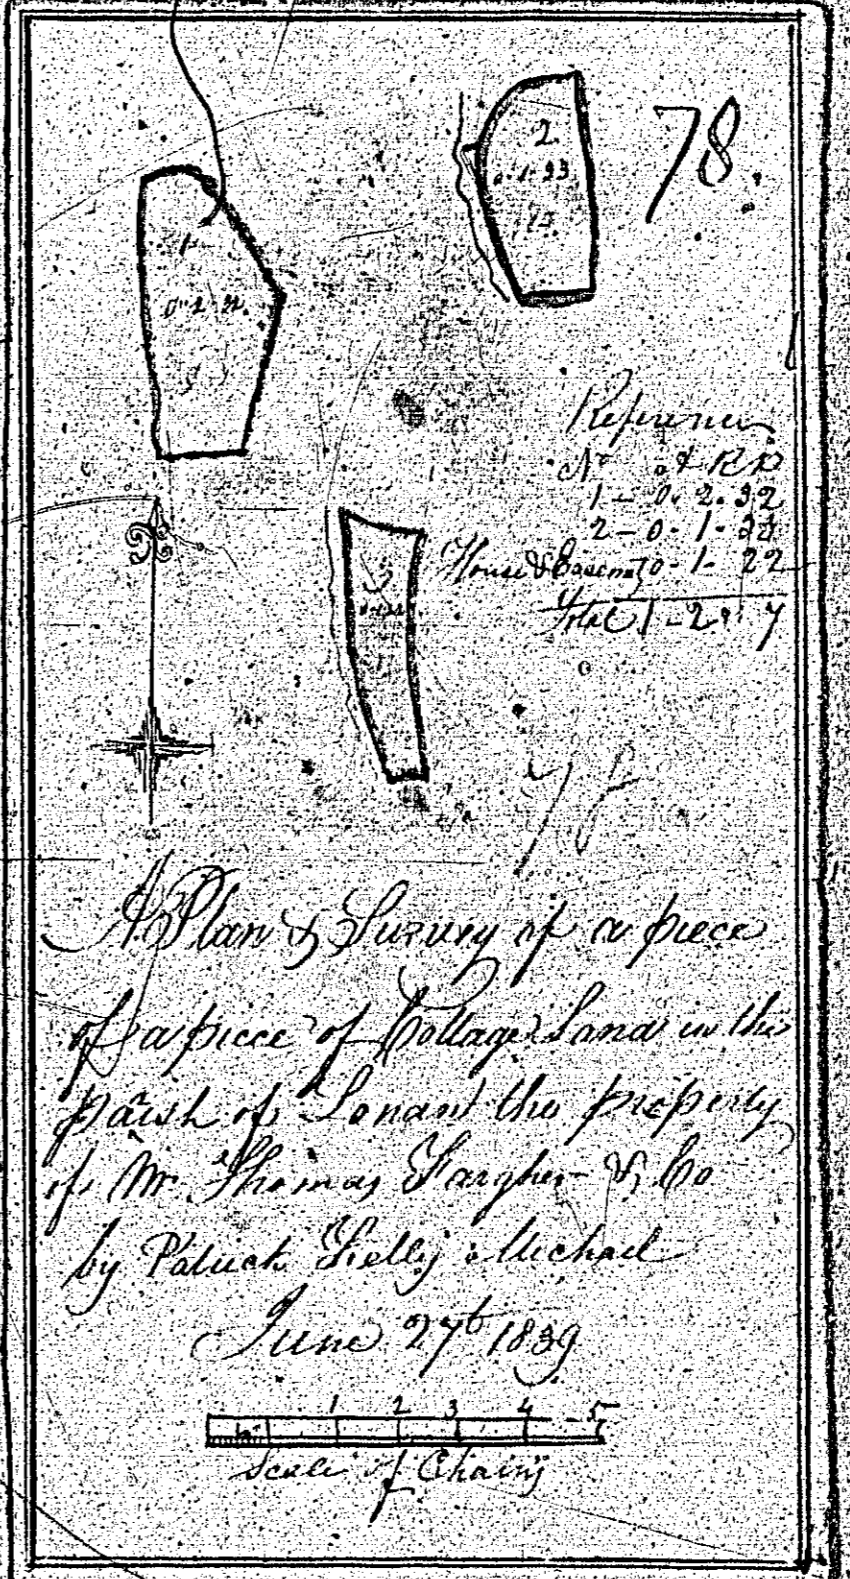 78.
2
0-1-33
1
Reference
No A R P
1-0.2.32
2-0-1-33
House & Easemt 0-1-22
Total 1-2-7
3
78
A Plan & Survey of a piece
of a piece of Cottage Land in the
parish of Lonan the property
of Mr. Thomas Fargher & Co
by Patrick Kelly Michael
June 27th 1839
1 2 3 4 5
Scale of Chains